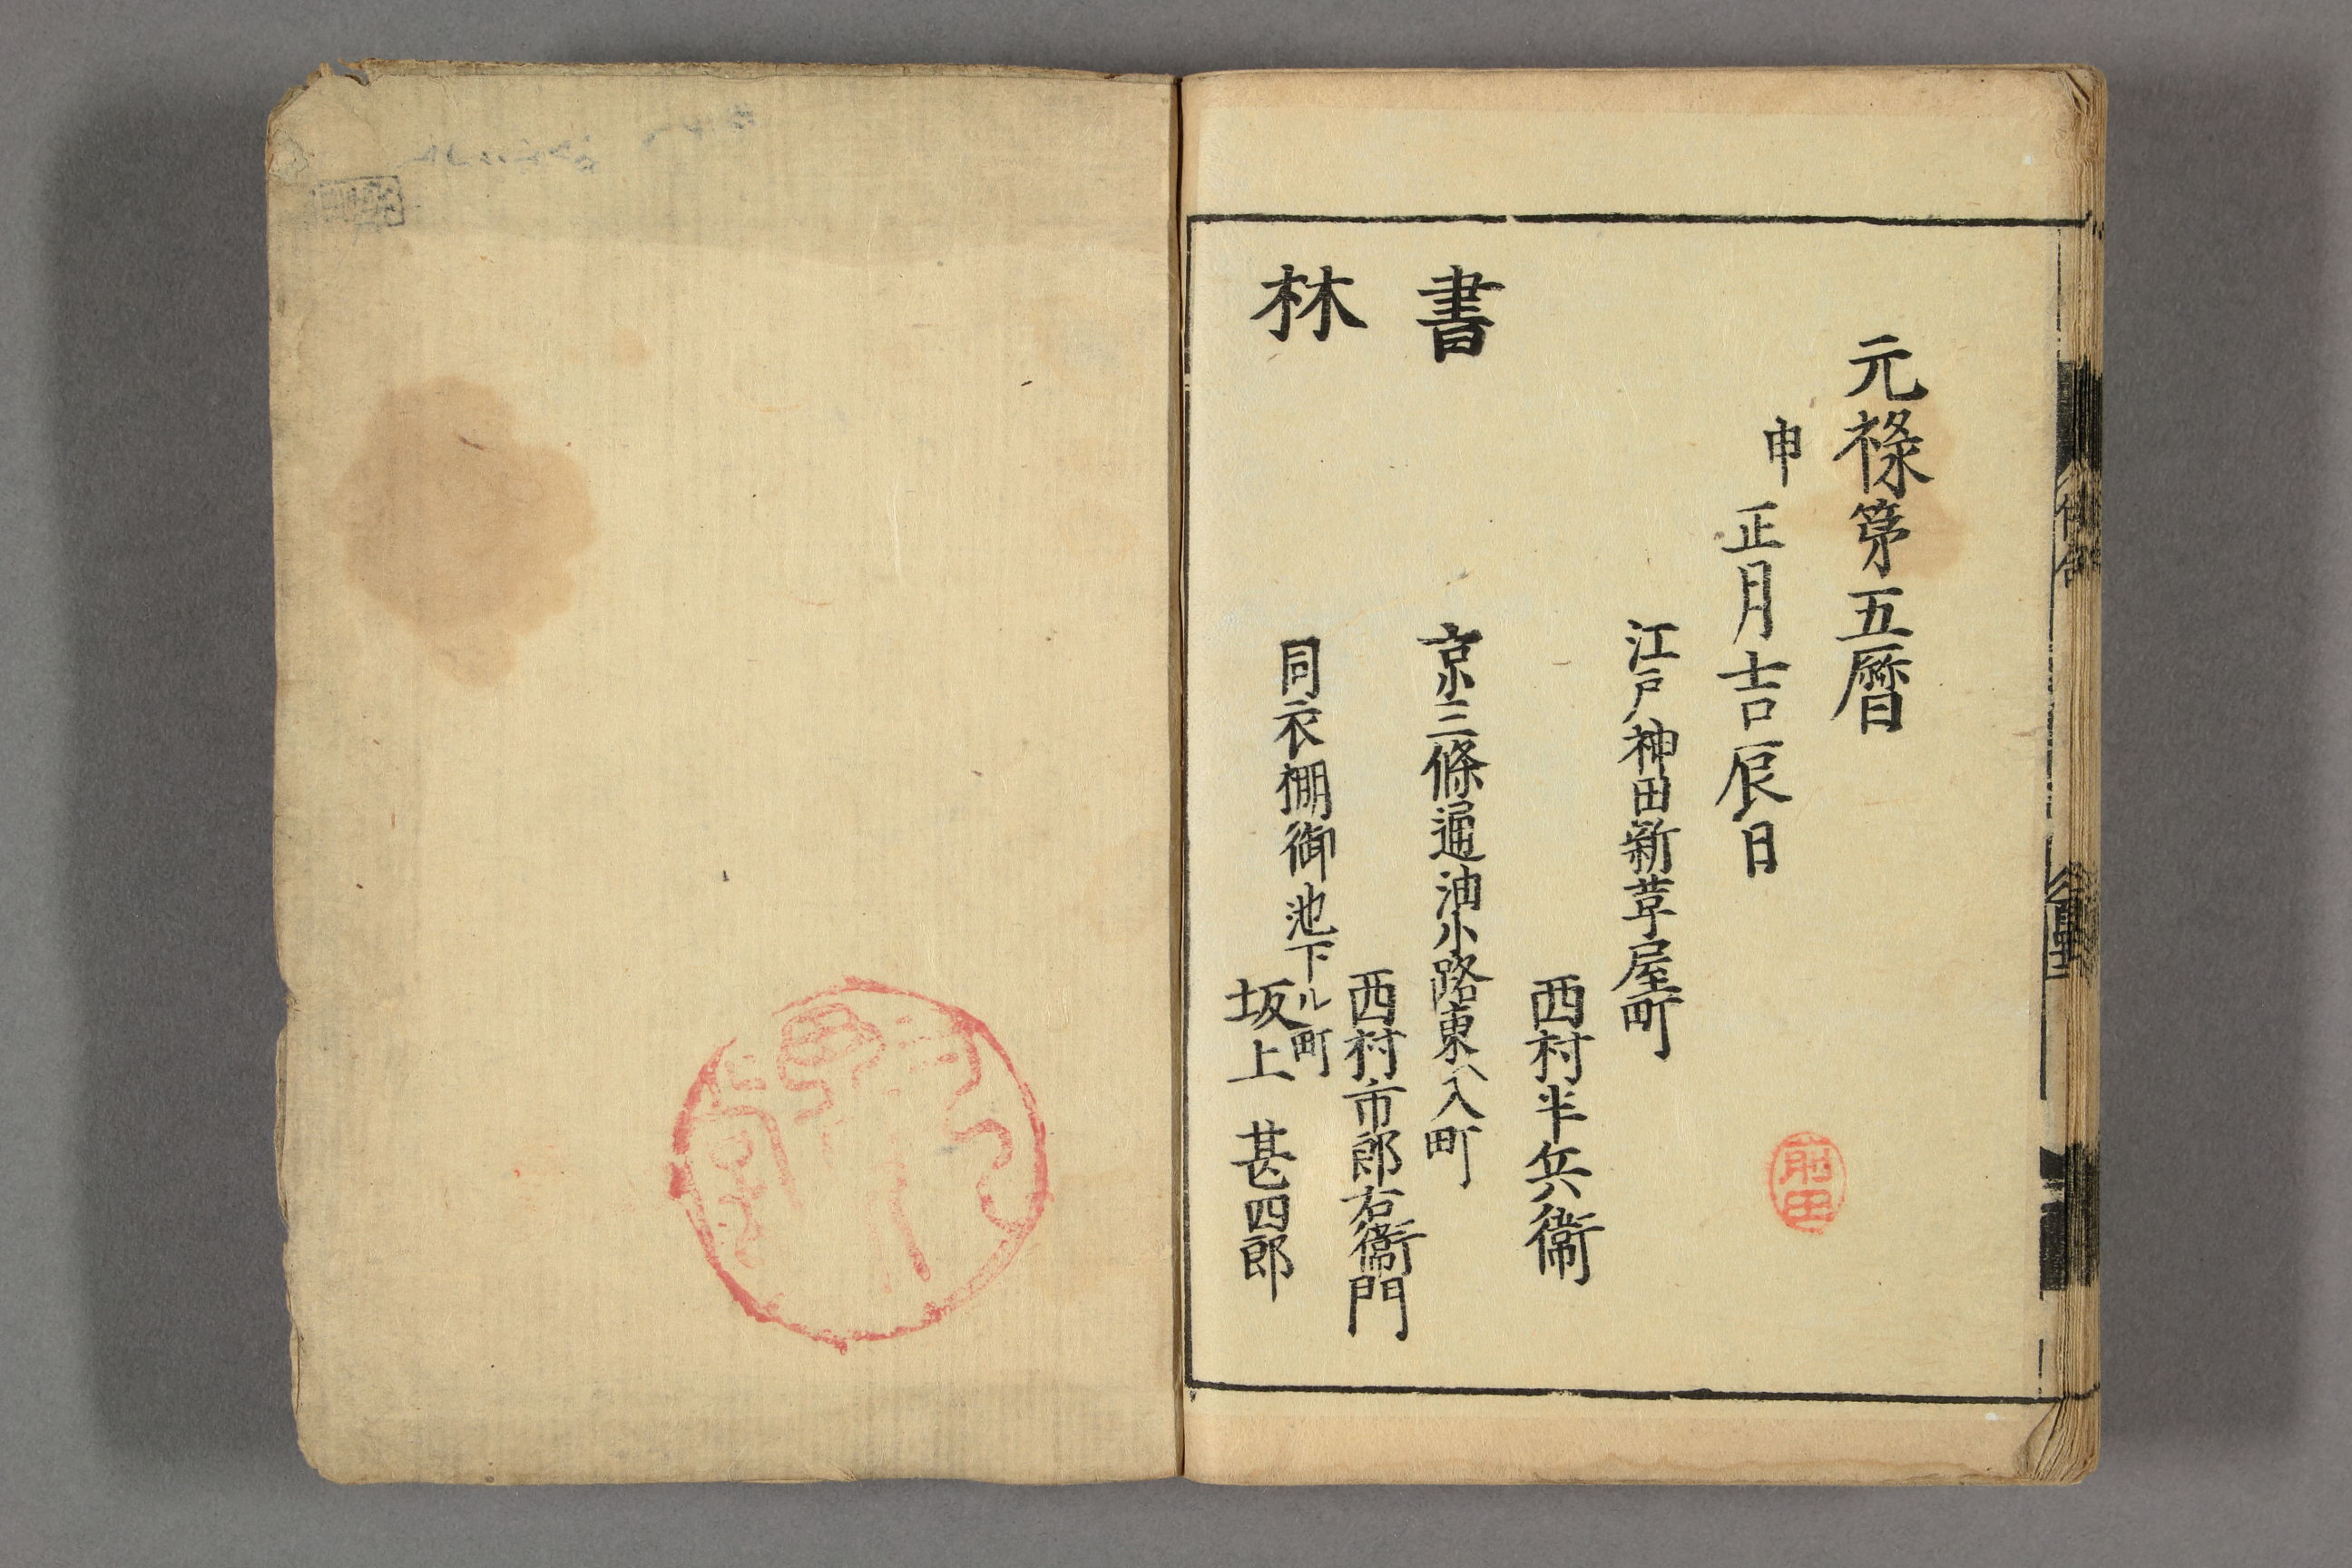 元禄第五暦
申
正月吉辰日
江戸神田新草屋町
西村半兵衛
書
京三條通油小路東入町
西村市郎右衛門
林
同衣棚御池下ル町
坂上甚四郎
前田